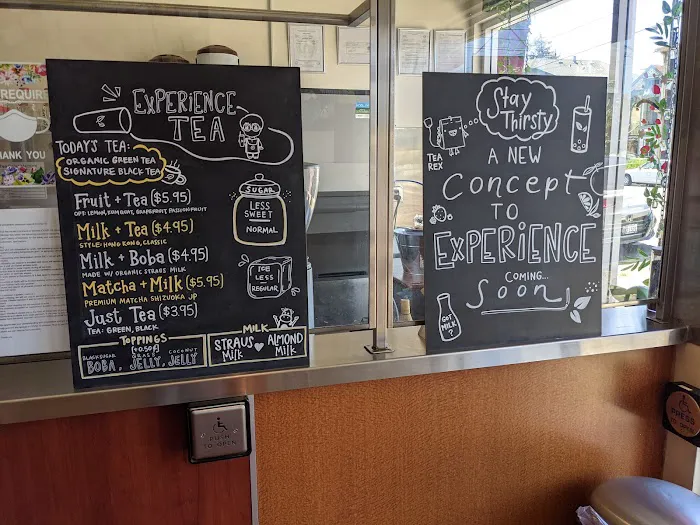 REQUIRE
THANK YOU
EXPERIENCE
TEA
TODAY'S TEA:
ORGANIC GREEN TEA
SIGNATURE BLACK TEA
Fruit + Tea ($5.95)
OPT: LEMON, KUMQUAT, GRAPEFRUIT, PASSIONFRUIT
Milk + Tea ($4.95)
STYLE: HONG KONG, CLASSIC
Milk + Boba ($4.95)
MADE W/ ORGANIC STRAUS MILK
Matcha + Milk ($5.95)
PREMIUM MATCHA SHIZUOKA JP
Just Tea ($3.95)
TEA: GREEN, BLACK
SUGAR
LESS
SWEET
NORMAL
ICE
LESS
REGULAR
TOPPINGS
(+0.50¢)
BLACKSUGAR
BOBA,
GRASS
JELLY,
COCONUT
JELLY
MILK
STRAUS
Milk
ALMOND
Milk
Stay
Thirsty
TEA
REX
A NEW
Concept
TO
EXPERIENCE
COMING...
Soon
GOT
MILK
?
PUSH
TO OPEN
PRESS